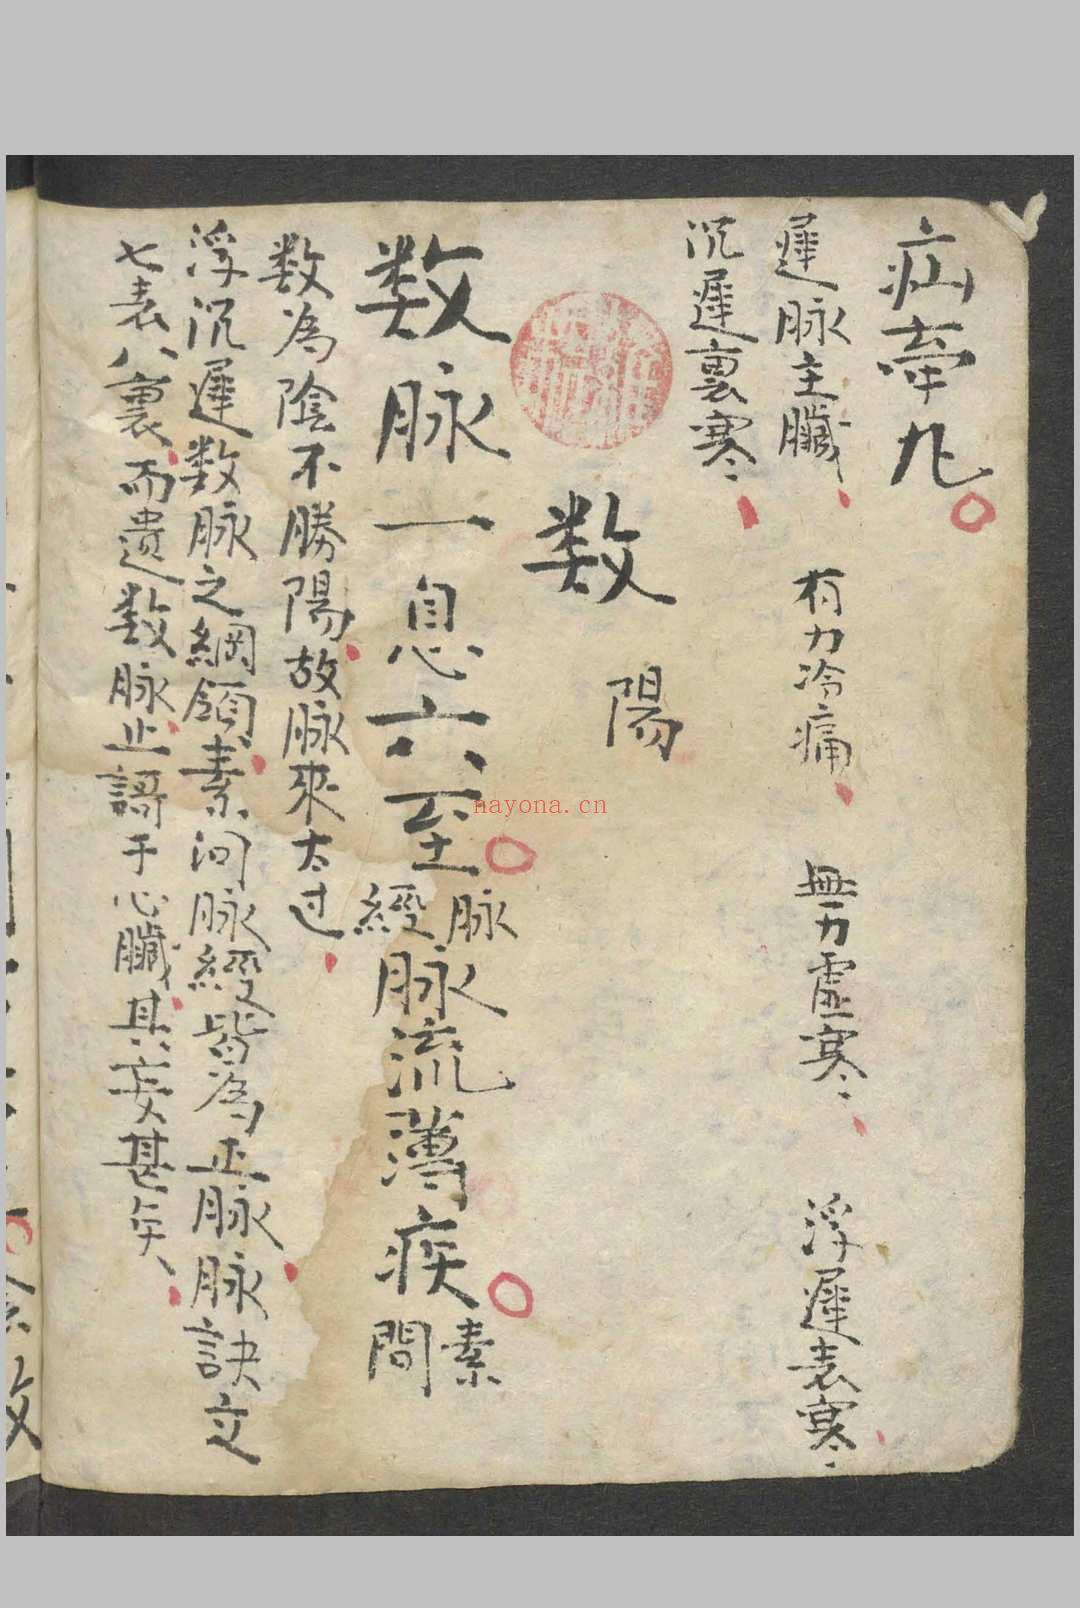 疝牽丸
遲脉主臟 有力冷痛 無力虛寒 浮遲表寒
沉遲裏寒
数 陽
数脉一息六至脉經脉流薄疾素問
数為陰不勝陽故脉來太过
浮沉遲数脉之綱領素问脉經皆為正脉脉訣立
七表八裏而遗数脉止謌于心臟其妄甚矣
nayona.cn